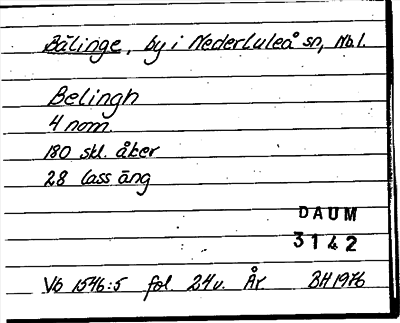 Bälinge, by i Nederluleå sn, Nb.l.
Belingh
4 nom.
180 skl. åker
28 lass äng
DAUM
3142
Vb 1546:5 fol. 24v. År BH 1976